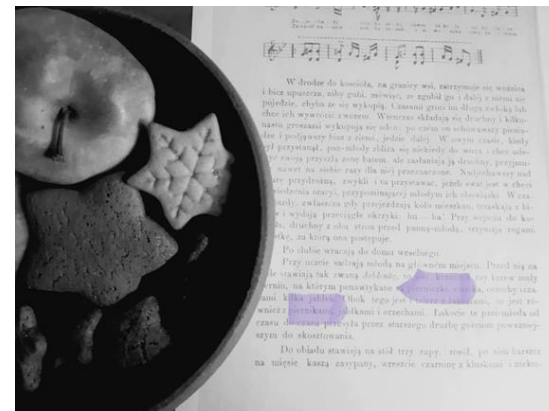 W drodze do kościoła, na granicy wsi, zatrzymuje się woźnica
i bicz upuszcza, niby gubi, mówiąc, że zgubił go i dalej z niemi nie
pojedzie, chyba że się wykupią. Czasami grozi im długą zwłoką lub
chce ich wywrócić z wozem. Wtenczas składają się druchny i kilku-
nastu groszami wykupują się odeń; po czem on schowawszy pienią-
dze i podjąwszy bicz z ziemi, jedzie dalej. W owym czasie, kiedy
był przystanął, pan-młody zbliża się niekiedy do wozu i chce ude-
żyć swoją przyszłą żonę batem, ale zasłaniają ją druchny, przyjmu-
nawet na siebie razy dla niej przeznaczone. Nadjechawszy nad
przydrożną, zwykli i tu przystawać, jeżeli swat jest w chęci
oracyi, przypominającej młodym ich obowiązki. W cza-
zwłaszcza gdy przejeżdżają koło mieszkań, trzaskają z bi-
i wydają przeciągłe okrzyki: hu — ha! Przy wejściu do ko-
druchny z obu stron przed panną-młodą, trzymają rogami
za którą ona postępuje.
Po ślubie wracają do domu weselnego.
Przy uczcie sadzają młodą na głównem miejscu. Przed nią na
stole stawiają tak zwaną krzew mały
na którym ponawtykane
kilka tego jest to jest ró-
wnież z piernikami, i orzechami. Łakocie te pani-młoda od
czasu do czasu posyła przez starszego drużbę gościom poważniej-
szym do skosztowania.
Do obiadu stawiają na stół trzy zupy: rosół, po nim barszcz
na mięsie kaszą zasypany, wreszcie czarninę z kluskami i